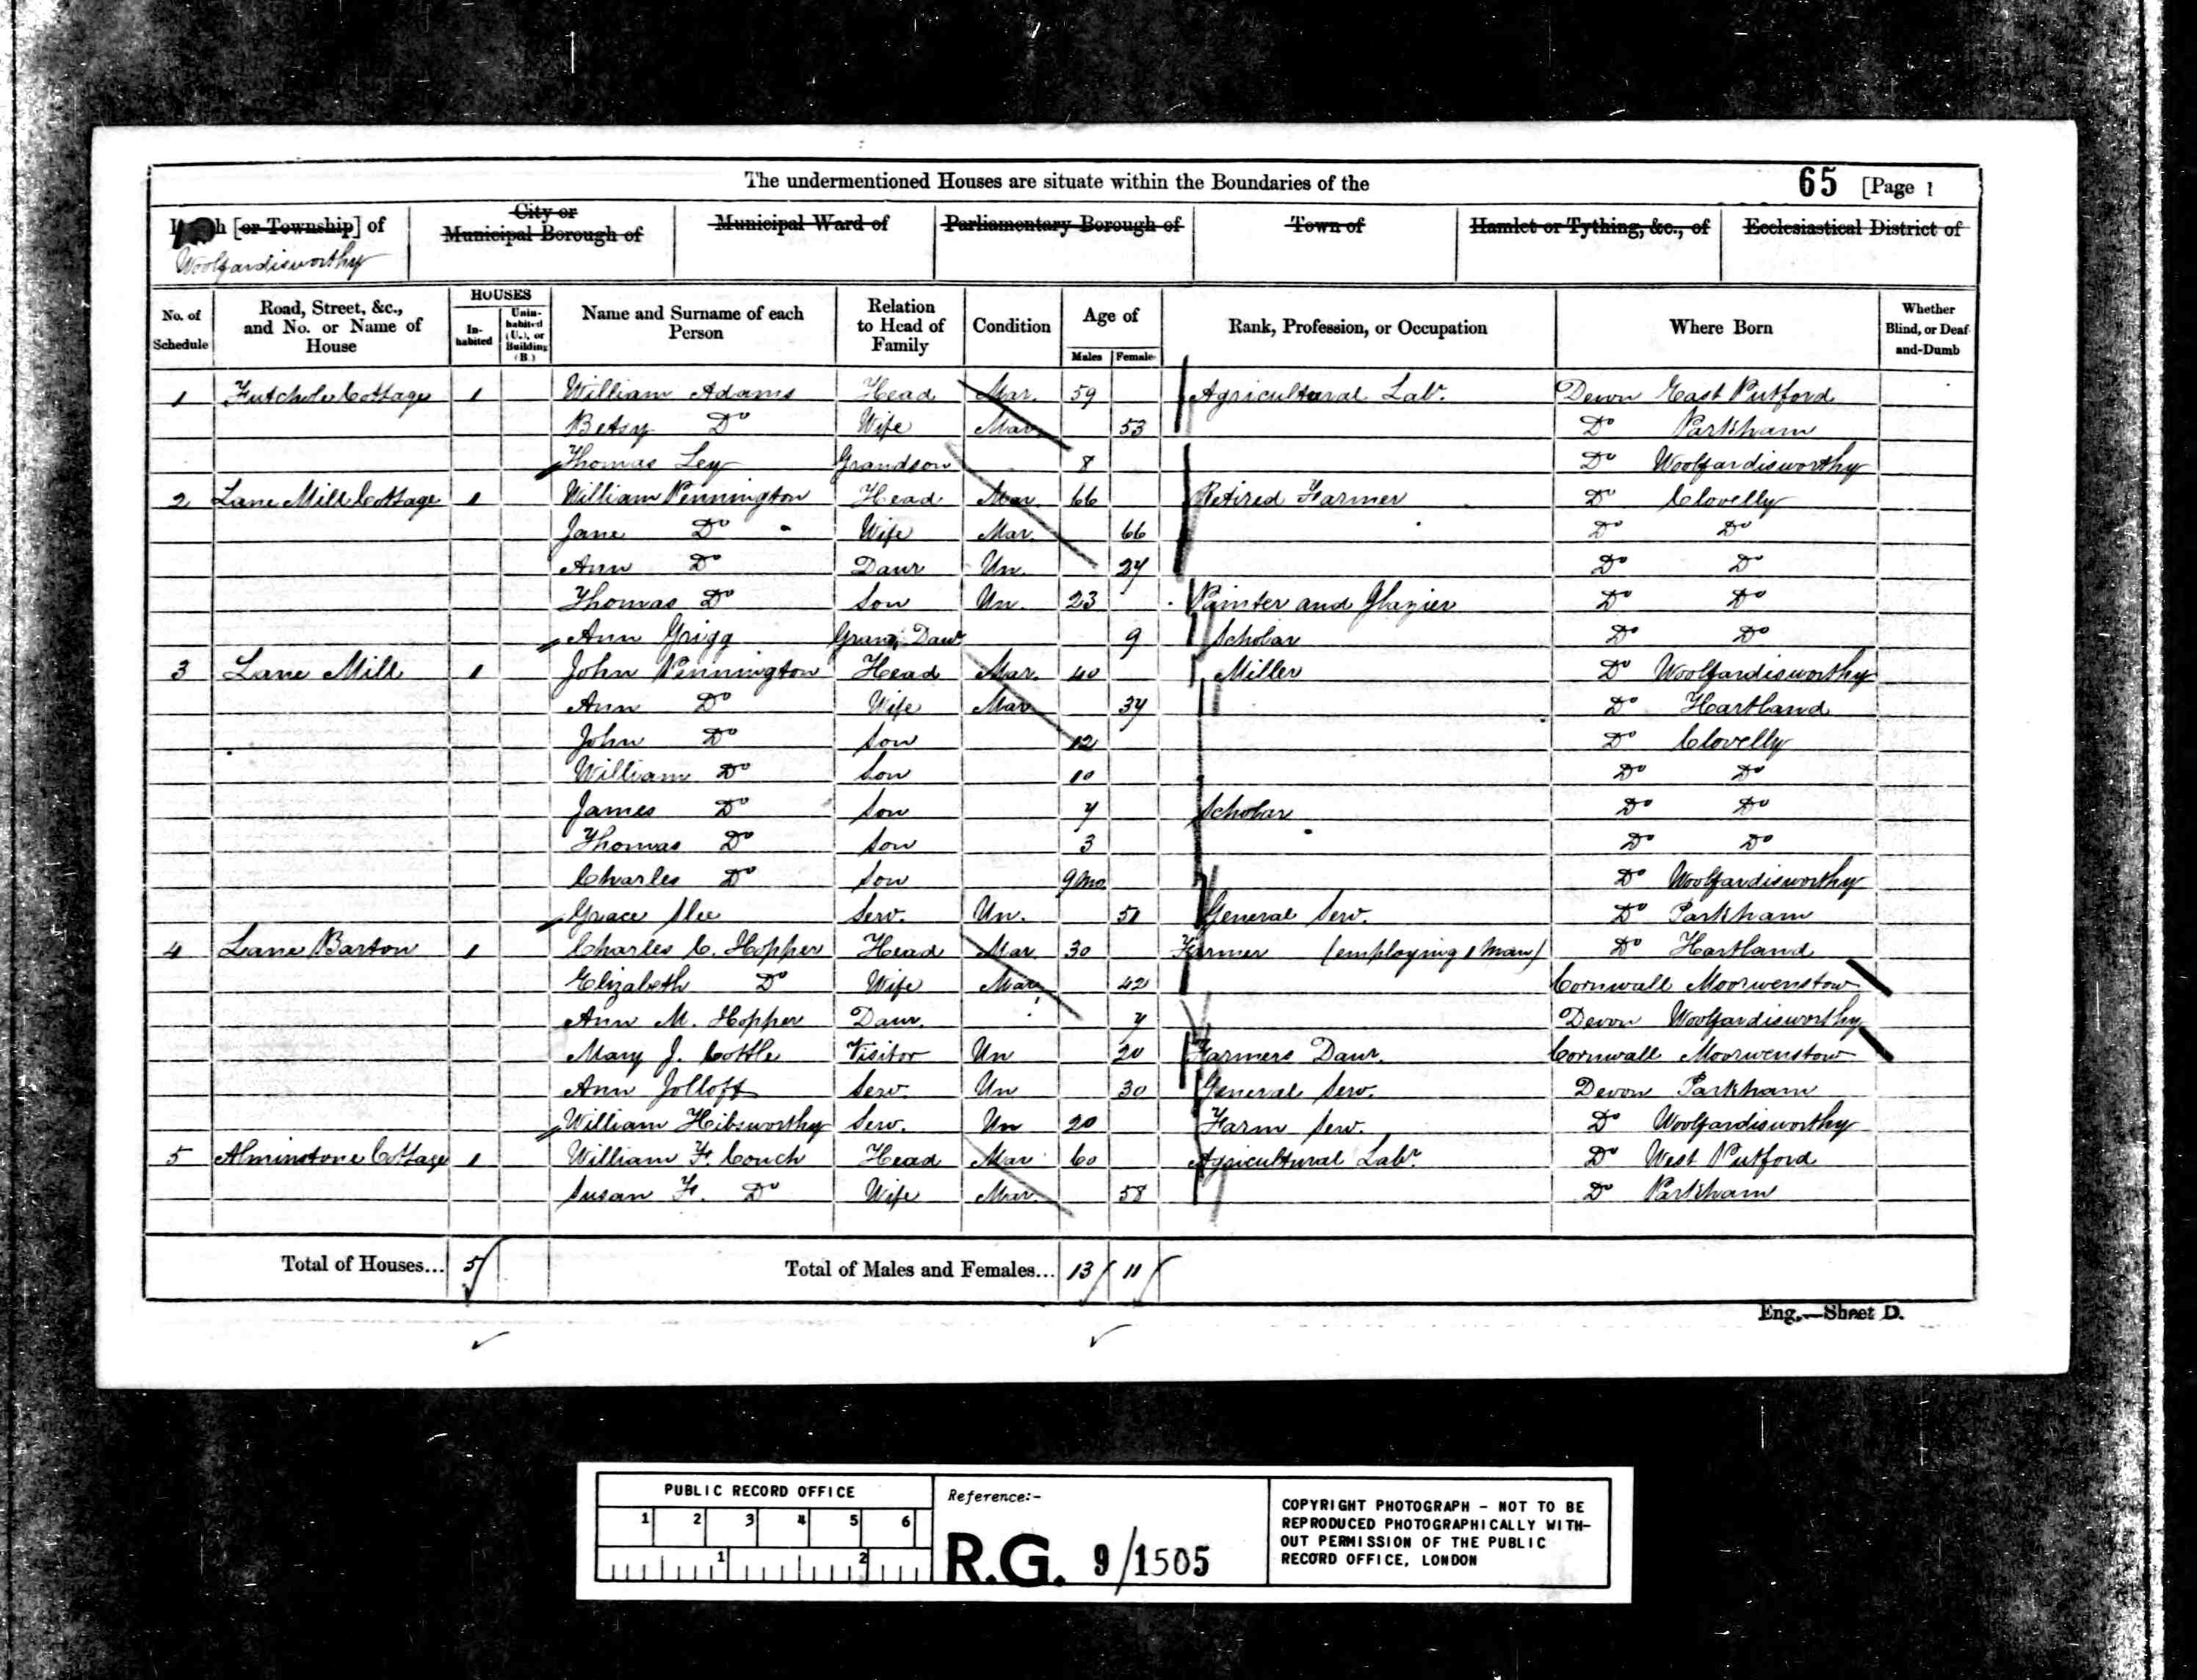 The undermentioned Houses are situate within the Boundaries of the 65 [Page 1
h [or Township] of City or Municipal Borough of Municipal Ward of Parliamentary Borough of Town of Hamlet or Tything, &c., of Ecclesiastical District of
Woolfardisworthy
No. of Schedule Road, Street, &c., and No. or Name of House HOUSES Inhabited Uninhabited (U.), or Building (B.) Name and Surname of each Person Relation to Head of Family Condition Age of Males Females Rank, Profession, or Occupation Where Born Whether Blind, or Deaf-and-Dumb
1 Cottage 1 William Adams Head Mar. 59 Agricultural Labr. Devon East Putford
Betsy Do Wife Mar 53 Do Parkham
Thomas Ley Grandson 8 Do Woolfardisworthy
2 Lane Mill Cottage 1 William Pennington Head Mar 66 Retired Farmer Do Clovelly
Jane Do Wife Mar. 66 Do Do
Ann Do Daur Un. 27 Do Do
Thomas Do Son Un. 23 Painter and Glazier Do Do
Ann Grigg Grand Daur 9 Scholar Do Do
3 Lane Mill 1 John Pennington Head Mar. 40 Miller Do Woolfardisworthy
Ann Do Wife Mar 37 Do Hartland
John Do Son 12 Do Clovelly
William Do Son 10 Do Do
James Do Son 7 Scholar Do Do
Thomas Do Son 3 Do Do
Charles Do Son 9 mo Do Woolfardisworthy
Grace Slee Serv. Un. 51 General Serv. Do Parkham
4 Lane Barton 1 Charles C. Hopper Head Mar 30 Farmer (employing 1 Man) Do Hartland
Elizabeth Do Wife Mar 42 Cornwall Moorwenstow
Ann M. Hopper Daur. 7 Devon Woolfardisworthy
Mary J. Cottle Visitor Un 20 Farmers Daur. Cornwall Moorwenstow
Ann Jolloff Serv. Un 30 General Serv. Devon Parkham
William Hibsworthy Serv. Un 20 Farm Serv. Do Woolfardisworthy
5 Alminstone Cottage 1 William F. Couch Head Mar 60 Agricultural Labr. Do West Putford
Susan F. Do Wife Mar. 58 Do Parkham
Total of Houses... 5 Total of Males and Females... 13 11
Eng.—Sheet D.
PUBLIC RECORD OFFICE
1 2 3 4 5 6
1 2
Reference:-
R.G. 9/1505
COPYRIGHT PHOTOGRAPH - NOT TO BE
REPRODUCED PHOTOGRAPHICALLY WITH-
OUT PERMISSION OF THE PUBLIC
RECORD OFFICE, LONDON